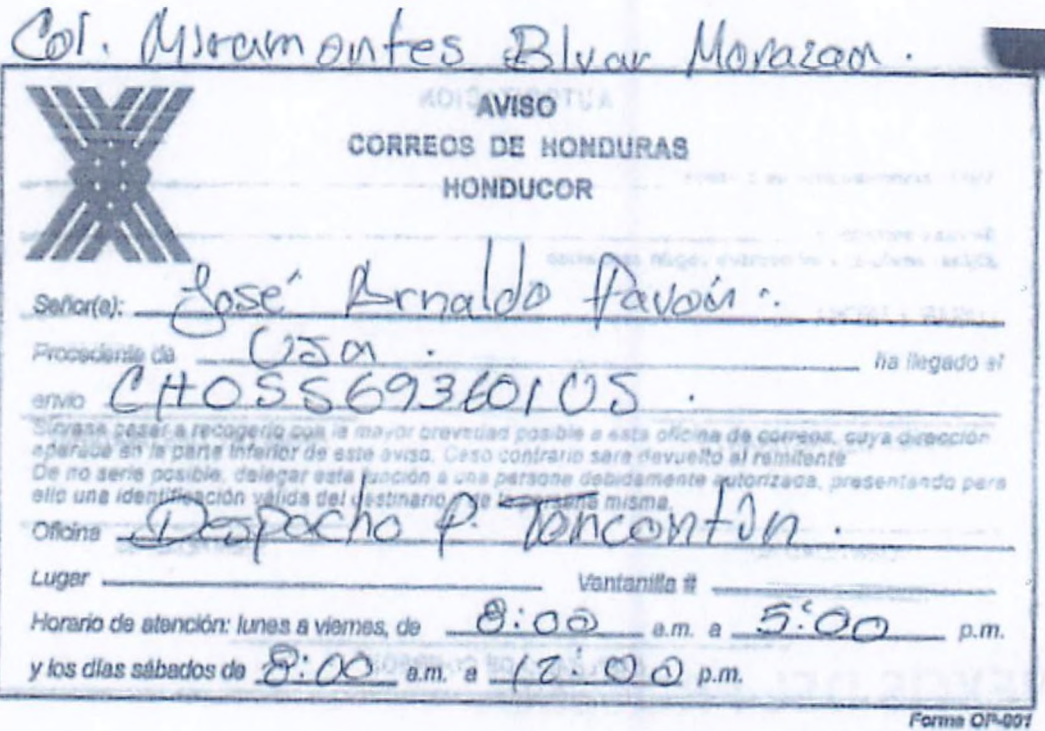 Col. Miramontes Blvar Morazan.
AVISO
CORREOS DE HONDURAS
HONDUCOR
Señor(a): José Arnaldo Pavón.
Procedente de USA. ha llegado el
envío CH055693601US.
Sírvase pasar a recogerlo con la mayor brevedad posible a esta oficina de correos, cuya dirección
aparece en la parte inferior de este aviso. Caso contrario sera devuelto al remitente
De no serle posible, delegar esta función a una persona debidamente autorizada, presentando para
ello una identificación válida del destinario y de la persona misma.
Oficina Despacho P. Toncontín.
Lugar Ventanilla #
Horario de atención: lunes a viernes, de 8:00 a.m. a 5:00 p.m.
y los días sábados de 8:00 a.m. a 12:00 p.m.
Forma OP-001